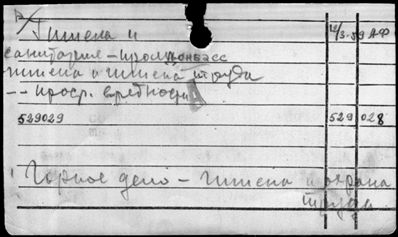 Гигиена и 12/3-59 АФ
санитария – пром Донбасс
гигиена и гигиена труда
-- проф. вредности
529029 529 028
Горное дело – гигиена и охрана
труда